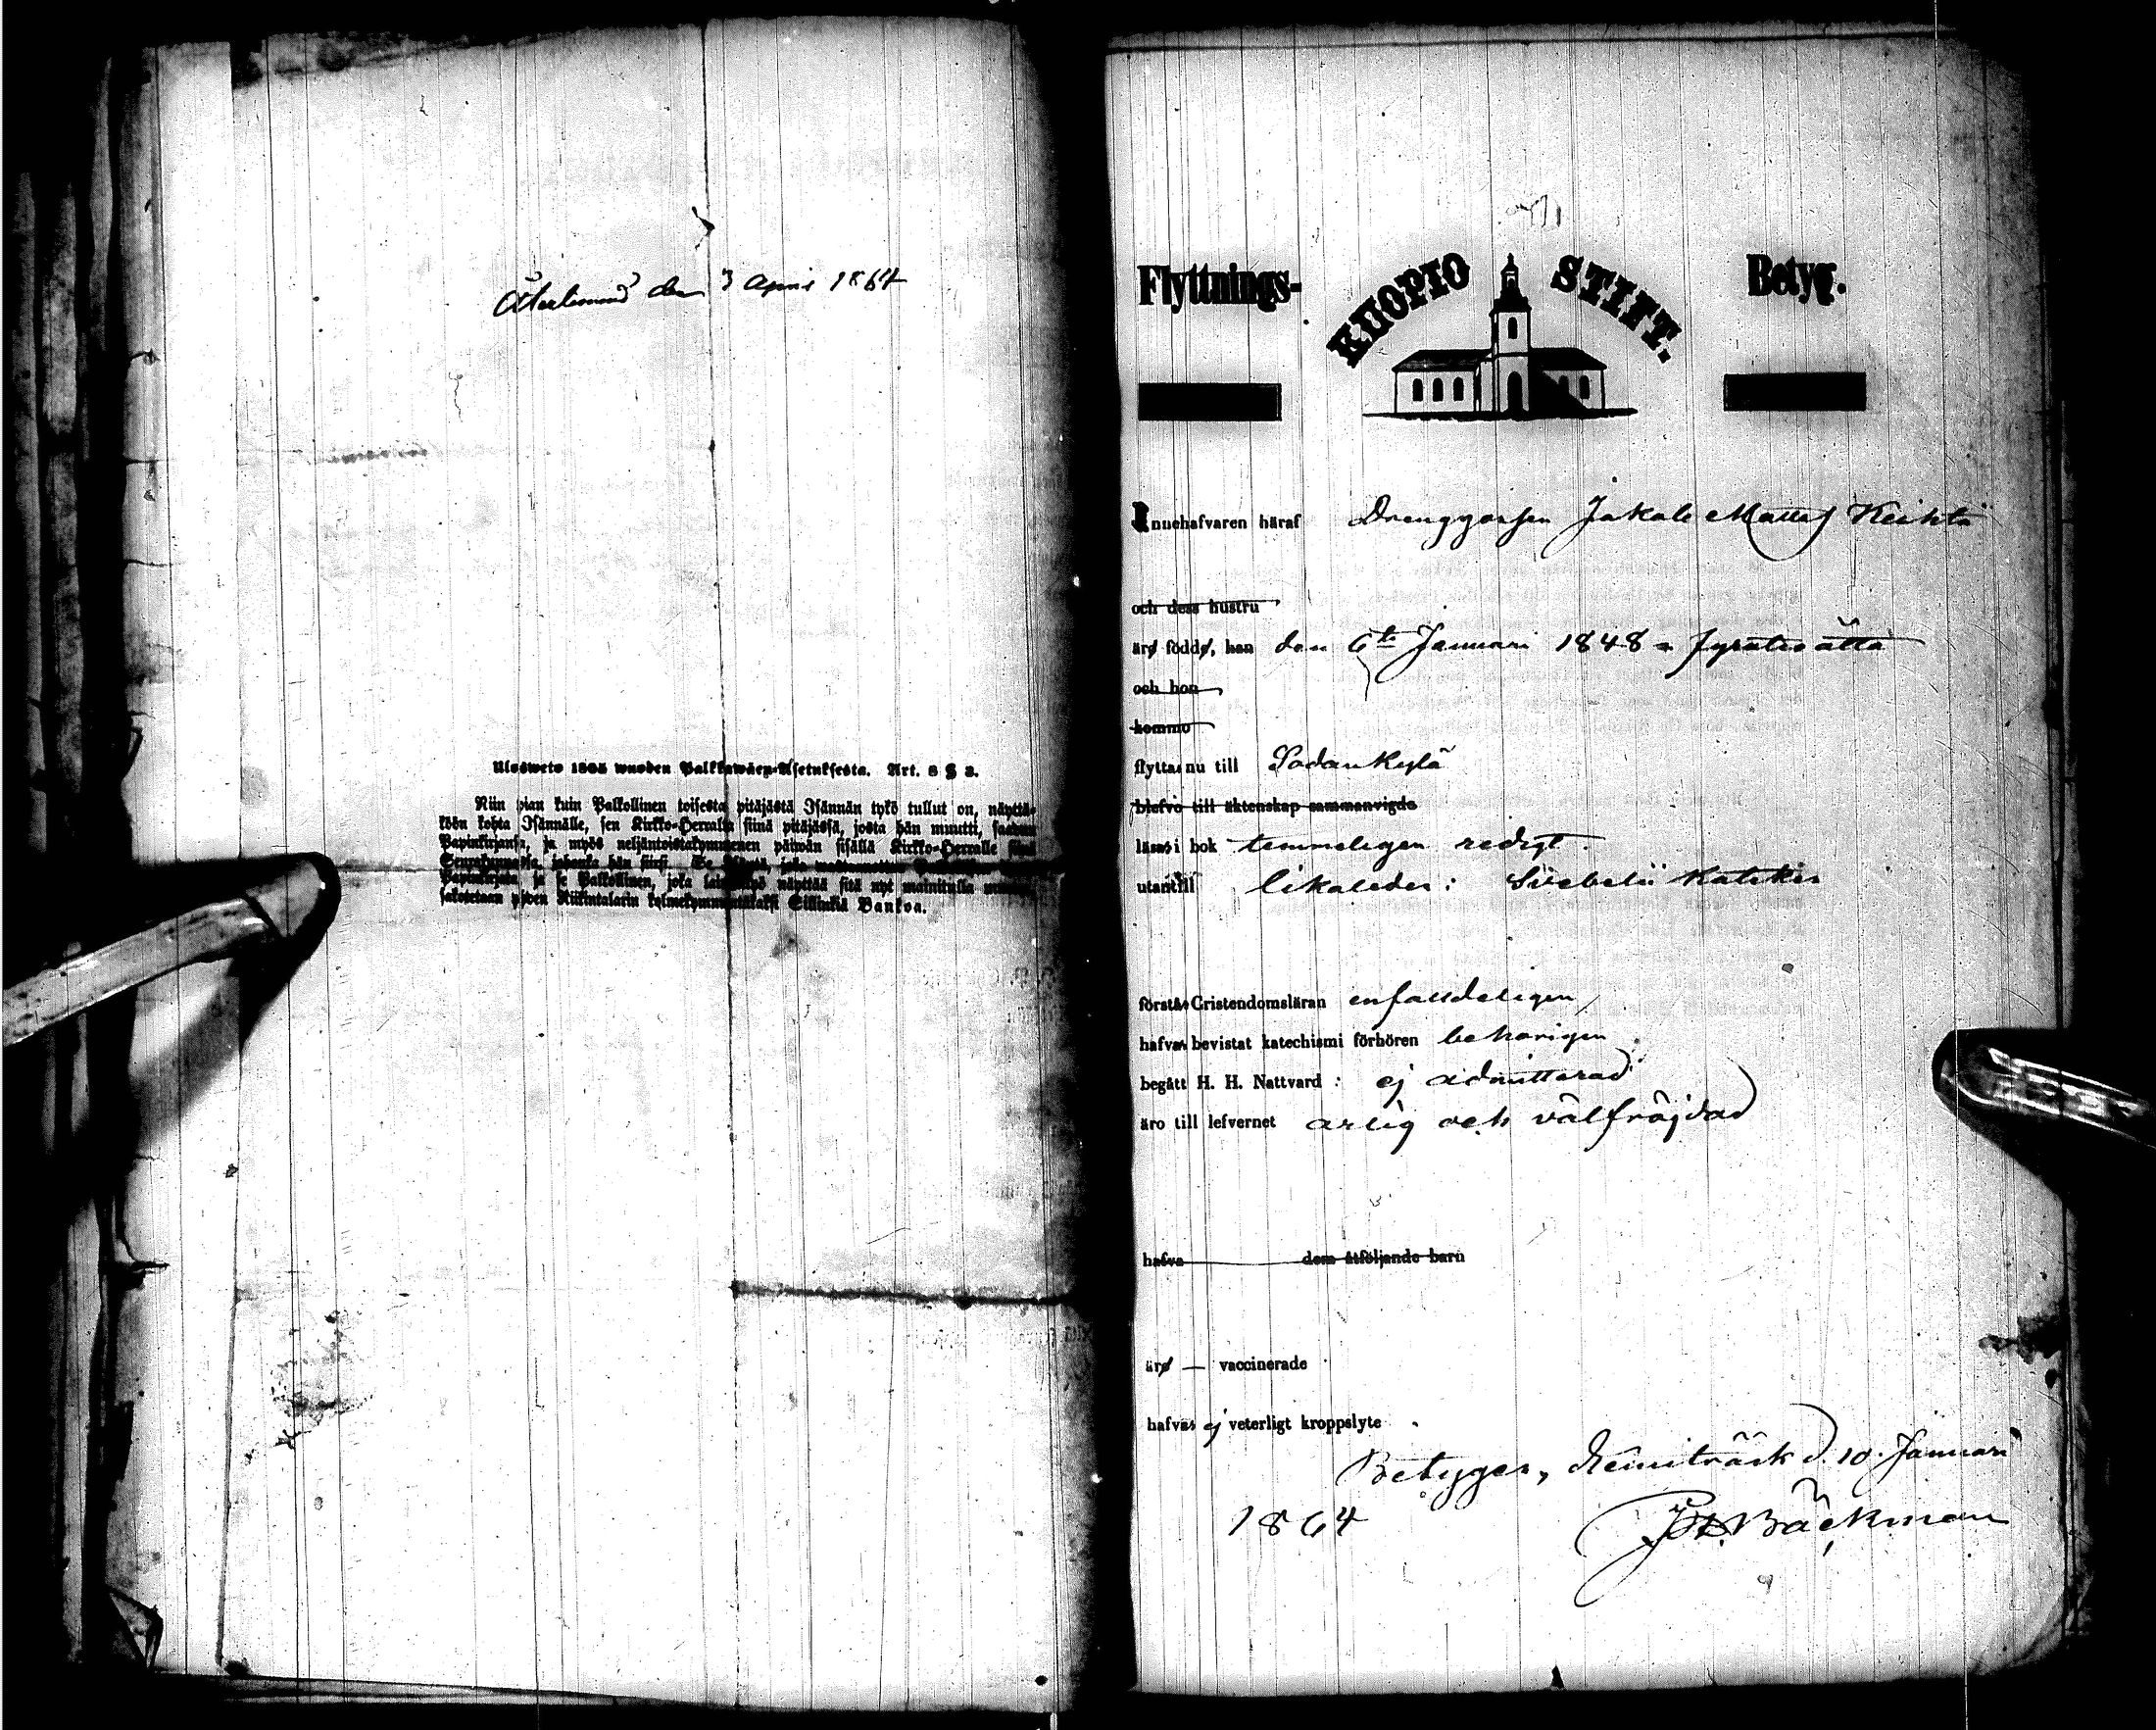 den 3 April 1864
Ulosweto 1805 wuoden Palkkawäen-Asetuksesta. Art. 8 § 3.
Niin pian kuin Palkollinen toisesta pitäjästä Isännän tykö tullut on, näyttä-
köön kohta Isännälle, sen Kirkko-Herralta siinä pitäjässä, josta hän muutti, saadun
Papinkirjansa, ja myös neljäntoistakymmenen päiwän sisällä Kirkko-Herralle siinä
Seurakunnassa, johonka hän siirsi. Se Isäntä, joka
Papinkirjata ja se Palkollinen, joka laiminlyö näyttää sitä nyt mainitulla
sakotetaan yhden Riikintalarin kylmekymmentäkaksi Sillinkiä Bankoa.
Flyttnings- KUOPIO STIFT. Betyg.
Innehafvaren häraf Drenggossen Jakob Matts Keihtä
och dess hustru
äro födde, han den 6te Januari 1848 = fyratio åtta
och hon
komma
flyttas nu till Sodankylä
blefvo till äktenskap sammanvigde
läsas i bok temmeligen redigt.
utantill likaledes: Svebelii Katekes
förstås Cristendomsläran enfaldeligen
hafvas bevistat katechismi förhören behörigen
begått H. H. Nattvard: ej admitterad
äro till lefvernet ärlig och välfräjdad
hafva dem åtföljande barn
äro — vaccinerade
hafvas ej veterligt kroppslyte.
Betygar, Kemiträsk d. 10. Januari
1864 Bäckman